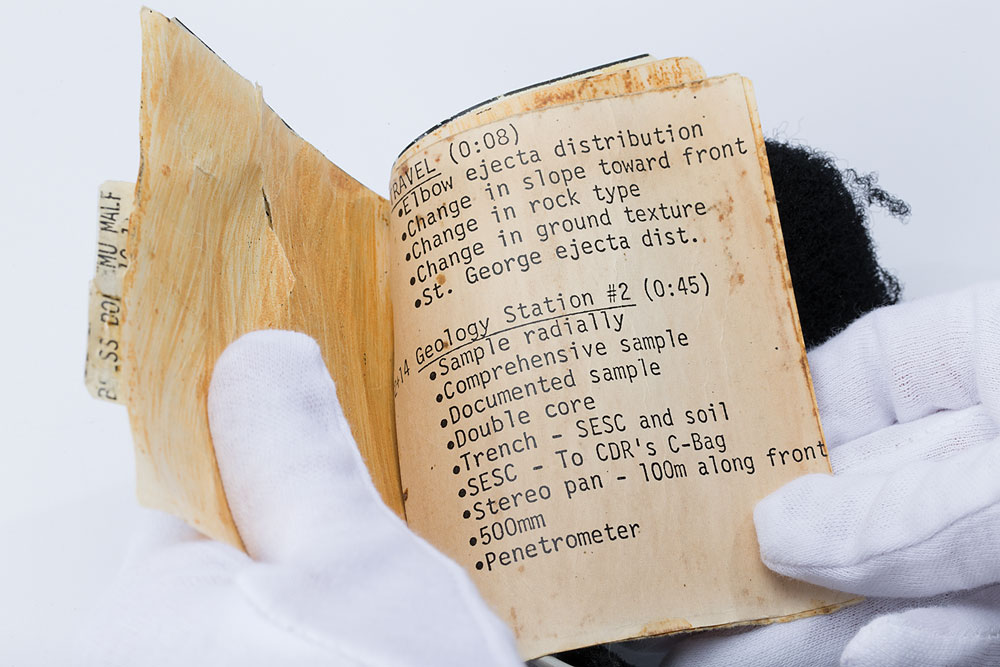 MU MALF
RAVEL (0:08)
•Elbow ejecta distribution
•Change in slope toward front
•Change in rock type
•Change in ground texture
•St. George ejecta dist.
+14 Geology Station #2 (0:45)
•Sample radially
•Comprehensive sample
•Documented sample
•Double core
•Trench - SESC and soil
•SESC - To CDR's C-Bag
•Stereo pan - 100m along front
•500mm
•Penetrometer